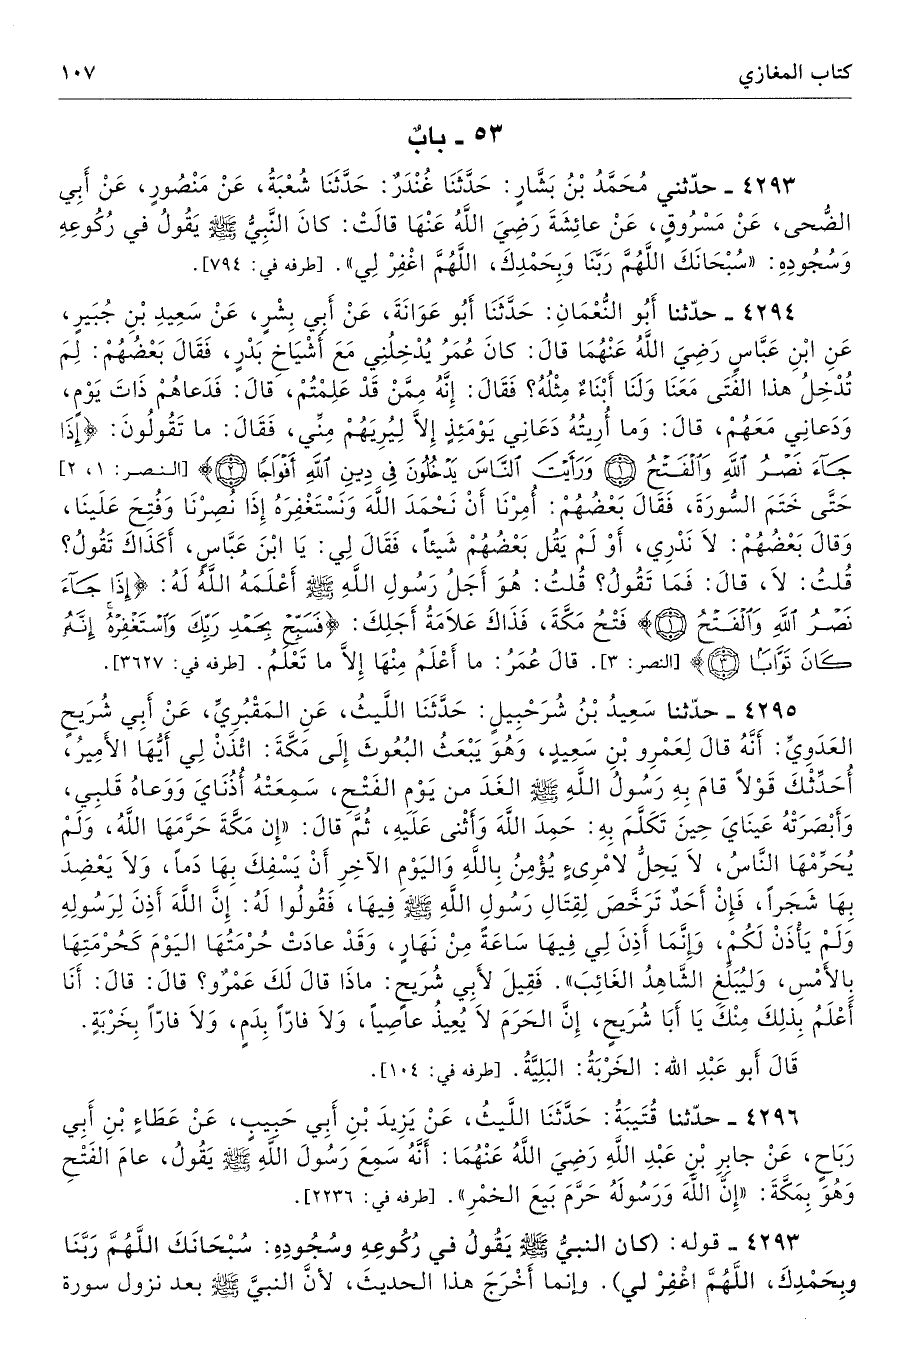 كتاب المغازي ١٠٧
٥٣ ـ بابٌ
٤٢٩٣ ـ حدّثني مُحَمَّدُ بْنُ بَشَّارٍ: حَدَّثَنَا غُنْدَرٌ: حَدَّثَنَا شُعْبَةُ، عَنْ مَنْصُورٍ، عَنْ أَبِي
الضُّحى، عَنْ مَسْرُوقٍ، عَنْ عائِشَةَ رَضِيَ اللَّهُ عَنْهَا قالَتْ: كانَ النَّبِيُّ ﷺ يَقُولُ في رُكُوعِهِ
وَسُجُودِهِ: «سُبْحَانَكَ اللَّهُمَّ رَبَّنَا وَبِحَمْدِكَ، اللَّهُمَّ اغْفِرْ لِي». [طرفه في: ٧٩٤].
٤٢٩٤ ـ حدّثنا أَبُو النُّعْمَانِ: حَدَّثَنَا أَبُو عَوَانَةَ، عَنْ أَبِي بِشْرٍ، عَنْ سَعِيدِ بْنِ جُبَيرٍ،
عَنِ ابْنِ عَبَّاسٍ رَضِيَ اللَّهُ عَنْهُمَا قالَ: كانَ عُمَرُ يُدْخِلُنِي مَعَ أَشْيَاخِ بَدْرٍ، فَقَالَ بَعْضُهُمْ: لِمَ
تُدْخِلُ هذا الفَتَى مَعَنَا وَلَنَا أَبْنَاءٌ مِثْلُهُ؟ فَقَالَ: إِنَّهُ مِمَّنْ قَدْ عَلِمْتُمْ، قالَ: فَدَعاهُمْ ذَاتَ يَوْمٍ،
وَدَعانِي مَعَهُمْ، قالَ: وَما أُرِيتُهُ دَعَانِي يَوْمَئِذٍ إِلاَّ لِيُرِيَهُمْ مِنِّي، فَقَالَ: ما تَقُولُونَ: ﴿إِذَا
جَآءَ نَصْرُ ٱللَّهِ وَٱلْفَتْحُ ۝١ وَرَأَيْتَ ٱلنَّاسَ يَدْخُلُونَ فِى دِينِ ٱللَّهِ أَفْوَاجًا ۝٢﴾ [النـصر: ١، ٢]
حَتَّى خَتَمَ السُّورَةَ، فَقَالَ بَعْضُهُمْ: أُمِرْنَا أَنْ نَحْمَدَ اللَّهَ وَنَسْتَغْفِرَهُ إِذَا نُصِرْنَا وَفُتِحَ عَلَينَا،
وَقالَ بَعْضُهُمْ: لاَ نَدْرِي، أَوْ لَمْ يَقُل بَعْضُهُمْ شَيئاً، فَقَالَ لِي: يَا ابْنَ عَبَّاسٍ، أَكَذَاكَ تَقُولُ؟
قُلتُ: لاَ، قالَ: فَمَا تَقُولُ؟ قُلتُ: هُوَ أَجَلُ رَسُولِ اللَّهِ ﷺ أَعْلَمَهُ اللَّهُ لَهُ: ﴿إِذَا جَآءَ
نَصْرُ ٱللَّهِ وَٱلْفَتْحُ ۝١﴾ فَتْحُ مَكَّةَ، فَذَاكَ عَلاَمَةُ أَجَلِكَ: ﴿فَسَبِّحْ بِحَمْدِ رَبِّكَ وَٱسْتَغْفِرْهُ إِنَّهُ
كَانَ تَوَّابًا ۝٣﴾ [النصر: ٣]. قالَ عُمَرُ: ما أَعْلَمُ مِنْهَا إِلاَّ ما تَعْلَمُ. [طرفه في: ٣٦٢٧].
٤٢٩٥ ـ حدّثنا سَعِيدُ بْنُ شُرَحْبِيلٍ: حَدَّثَنَا اللَّيثُ، عَنِ المَقْبُرِيِّ، عَنْ أَبِي شُرَيحٍ
العَدَوِيِّ: أَنَّهُ قالَ لِعَمْرِو بْنِ سَعِيدٍ، وَهُوَ يَبْعَثُ البُعُوثَ إِلَى مَكَّةَ: ائْذَنْ لِي أَيُّهَا الأَمِيرُ،
أُحَدِّثْكَ قَوْلاً قامَ بِهِ رَسُولُ اللَّهِ ﷺ الغَدَ من يَوْمِ الفَتْحِ، سَمِعَتْهُ أُذُنَايَ وَوَعاهُ قَلبِي،
وَأَبْصَرَتْهُ عَينَايَ حِينَ تَكَلَّمَ بِهِ: حَمِدَ اللَّهَ وَأَثْنى عَلَيهِ، ثُمَّ قالَ: «إِن مَكَّةَ حَرَّمَهَا اللَّهُ، وَلَمْ
يُحَرِّمْهَا النَّاسُ، لاَ يَحِلُّ لاِمْرِىءٍ يُؤْمِنُ بِاللَّهِ وَاليَوْمِ الآخِرِ أَنْ يَسْفِكَ بِهَا دَماً، وَلاَ يَعْضِدَ
بِهَا شَجَراً، فَإِنْ أَحَدٌ تَرَخَّصَ لِقِتَالِ رَسُولِ اللَّهِ ﷺ فِيهَا، فَقُولُوا لَهُ: إِنَّ اللَّهَ أَذِنَ لِرَسُولِهِ
وَلَمْ يَأْذَنْ لَكُمْ، وَإِنَّمَا أَذِنَ لِي فِيهَا سَاعَةً مِنْ نَهَارٍ، وَقَدْ عادَتْ حُرْمَتُهَا اليَوْمَ كَحُرْمَتِهَا
بِالأَمْسِ، وَليُبَلِّغِ الشَّاهِدُ الغَائِبَ». فَقِيلَ لأَبِي شُرَيحٍ: ماذَا قالَ لَكَ عَمْرٌو؟ قالَ: قالَ: أَنَا
أَعْلَمُ بِذلِكَ مِنْكَ يَا أَبَا شُرَيحٍ، إِنَّ الحَرَمَ لاَ يُعِيذُ عاصِياً، وَلاَ فارّاً بِدَمٍ، وَلاَ فارّاً بِخَرْبَةٍ.
قَالَ أبو عَبْدِ الله: الخَرْبَةُ: البَلِيَّةُ. [طرفه في: ١٠٤].
٤٢٩٦ ـ حدّثنا قُتَيبَةُ: حَدَّثَنَا اللَّيثُ، عَنْ يَزِيدَ بْنِ أَبِي حَبِيبٍ، عَنْ عَطَاءِ بْنِ أَبِي
رَبَاحٍ، عَنْ جابِرِ بْنِ عَبْدِ اللَّهِ رَضِيَ اللَّهُ عَنْهُمَا: أَنَّهُ سَمِعَ رَسُولَ اللَّهِ ﷺ يَقُولُ، عامَ الفَتْحِ
وَهُوَ بِمَكَّةَ: «إِنَّ اللَّهَ وَرَسُولَهُ حَرَّمَ بَيعَ الخمْرِ». [طرفه في: ٢٢٣٦].
٤٢٩٣ ـ قوله: (كان النبيُّ ﷺ يَقُولُ في رُكُوعِهِ وسُجُودِهِ: سُبْحَانَكَ اللَّهُمَّ رَبَّنَا
وبِحَمْدِكَ، اللَّهُمَّ اغْفِرْ لي). وإنما أَخْرَجَ هذا الحديثَ، لأنَّ النبيَّ ﷺ بعد نزول سورة